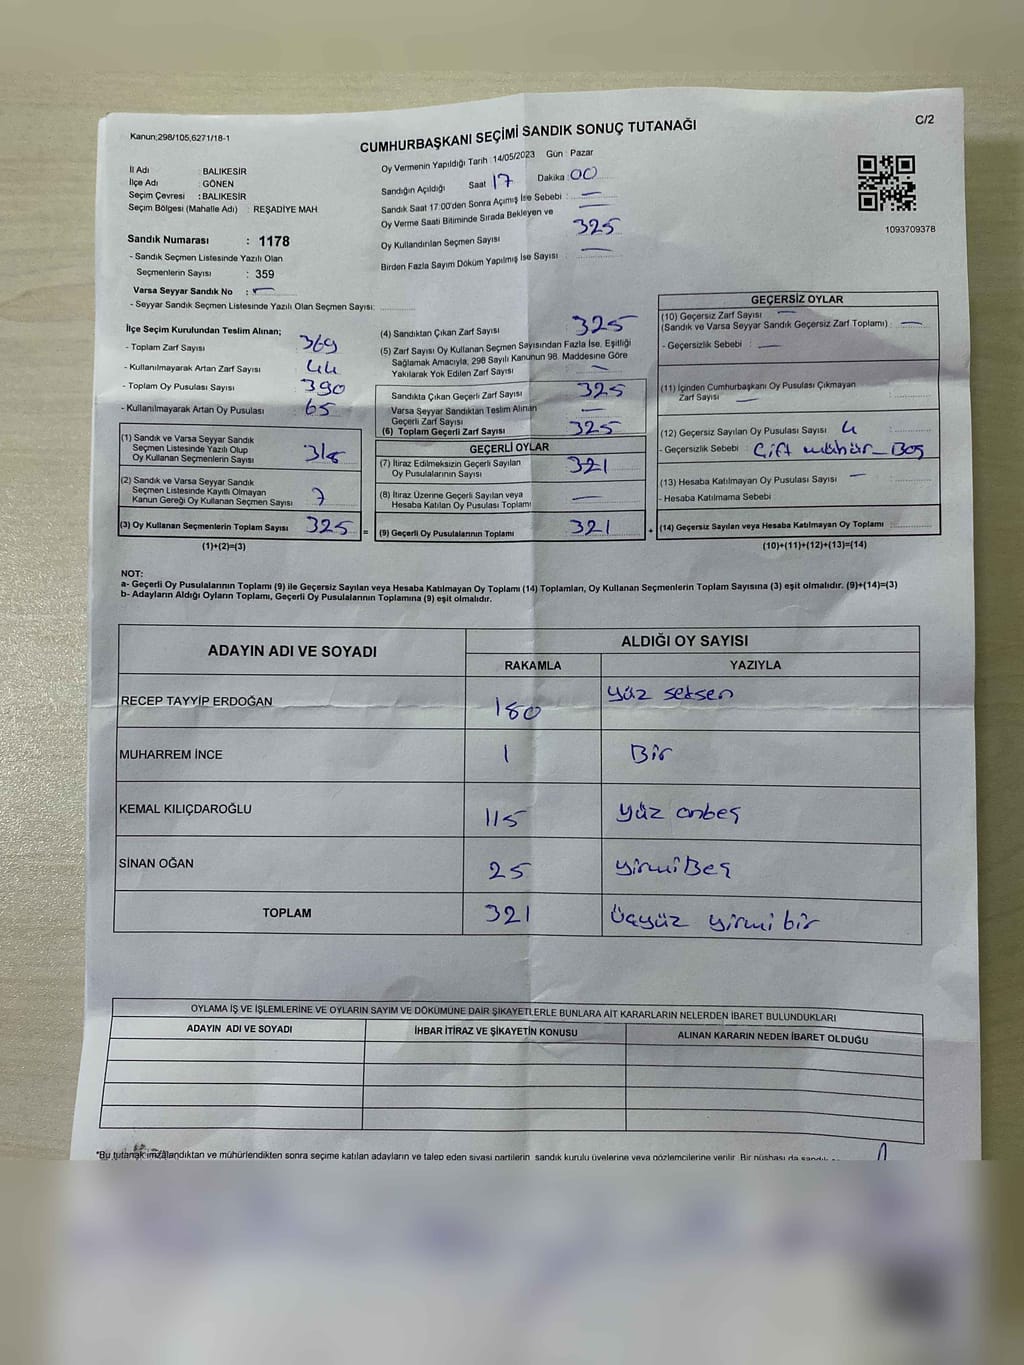 Kanun;298/105,6271/18-1
C/2
CUMHURBAŞKANI SEÇİMİ SANDIK SONUÇ TUTANAĞI
İl Adı : BALIKESİR
İlçe Adı : GÖNEN
Seçim Çevresi : BALIKESİR
Seçim Bölgesi (Mahalle Adı) : REŞADİYE MAH
Oy Vermenin Yapıldığı Tarih : 14/05/2023 Gün : Pazar
Sandığın Açıldığı Saat 17 Dakika : 00
Sandık Saat 17:00'den Sonra Açımış İse Sebebi : —
Oy Verme Saati Bitiminde Sırada Bekleyen ve —
Oy Kullandırılan Seçmen Sayısı 325
Birden Fazla Sayım Döküm Yapılmış İse Sayısı : —
1093709378
Sandık Numarası : 1178
- Sandık Seçmen Listesinde Yazılı Olan
Seçmenlerin Sayısı : 359
Varsa Seyyar Sandık No : —
- Seyyar Sandık Seçmen Listesinde Yazılı Olan Seçmen Sayısı:
İlçe Seçim Kurulundan Teslim Alınan;
- Toplam Zarf Sayısı : 369
- Kullanılmayarak Artan Zarf Sayısı : 44
- Toplam Oy Pusulası Sayısı : 390
- Kullanılmayarak Artan Oy Pusulası : 65
(1) Sandık ve Varsa Seyyar Sandık
Seçmen Listesinde Yazılı Olup
Oy Kullanan Seçmenlerin Sayısı : 318
(2) Sandık ve Varsa Seyyar Sandık
Seçmen Listesinde Kayıtlı Olmayan
Kanun Gereği Oy Kullanan Seçmen Sayısı : 7
(3) Oy Kullanan Seçmenlerin Toplam Sayısı : 325 =
(1)+(2)=(3)
(4) Sandıktan Çıkan Zarf Sayısı 325
(5) Zarf Sayısı Oy Kullanan Seçmen Sayısından Fazla İse, Eşitliği
Sağlamak Amacıyla, 298 Sayılı Kanunun 98. Maddesine Göre
Yakılarak Yok Edilen Zarf Sayısı : —
Sandıkta Çıkan Geçerli Zarf Sayısı : 325
Varsa Seyyar Sandıktan Teslim Alınan
Geçerli Zarf Sayısı : —
(6) Toplam Geçerli Zarf Sayısı : 325
GEÇERLİ OYLAR
(7) İtiraz Edilmeksizin Geçerli Sayılan
Oy Pusulalarının Sayısı : 321
(8) İtiraz Üzerine Geçerli Sayılan veya
Hesaba Katılan Oy Pusulası Toplamı : —
(9) Geçerli Oy Pusulalarının Toplamı : 321 +
GEÇERSİZ OYLAR
(10) Geçersiz Zarf Sayısı —
(Sandık ve Varsa Seyyar Sandık Geçersiz Zarf Toplamı) : —
- Geçersizlik Sebebi : —
(11) İçinden Cumhurbaşkanı Oy Pusulası Çıkmayan
Zarf Sayısı —
(12) Geçersiz Sayılan Oy Pusulası Sayısı 4
- Geçersizlik Sebebi : Çift mühür_Boş
(13) Hesaba Katılmayan Oy Pusulası Sayısı —
- Hesaba Katılmama Sebebi
(14) Geçersiz Sayılan veya Hesaba Katılmayan Oy Toplamı :
(10)+(11)+(12)+(13)=(14)
NOT:
a- Geçerli Oy Pusulalarının Toplamı (9) ile Geçersiz Sayılan veya Hesaba Katılmayan Oy Toplamı (14) Toplamları, Oy Kullanan Seçmenlerin Toplam Sayısına (3) eşit olmalıdır. (9)+(14)=(3)
b- Adayların Aldığı Oyların Toplamı, Geçerli Oy Pusulalarının Toplamına (9) eşit olmalıdır.
ADAYIN ADI VE SOYADI
ALDIĞI OY SAYISI
RAKAMLA YAZIYLA
RECEP TAYYİP ERDOĞAN 180 yüz seksen
MUHARREM İNCE 1 Bir
KEMAL KILIÇDAROĞLU 115 yüz onbeş
SİNAN OĞAN 25 yirmiBeş
TOPLAM 321 üçyüz yirmi bir
OYLAMA İŞ VE İŞLEMLERİNE VE OYLARIN SAYIM VE DÖKÜMÜNE DAİR ŞİKAYETLERLE BUNLARA AİT KARARLARIN NELERDEN İBARET BULUNDUKLARI
ADAYIN ADI VE SOYADI İHBAR İTİRAZ VE ŞİKAYETİN KONUSU ALINAN KARARIN NEDEN İBARET OLDUĞU
*Bu tutanak imzalandıktan ve mühürlendikten sonra seçime katılan adayların ve talep eden siyasi partilerin sandık kurulu üyelerine veya gözlemcilerine verilir. Bir nüshası da